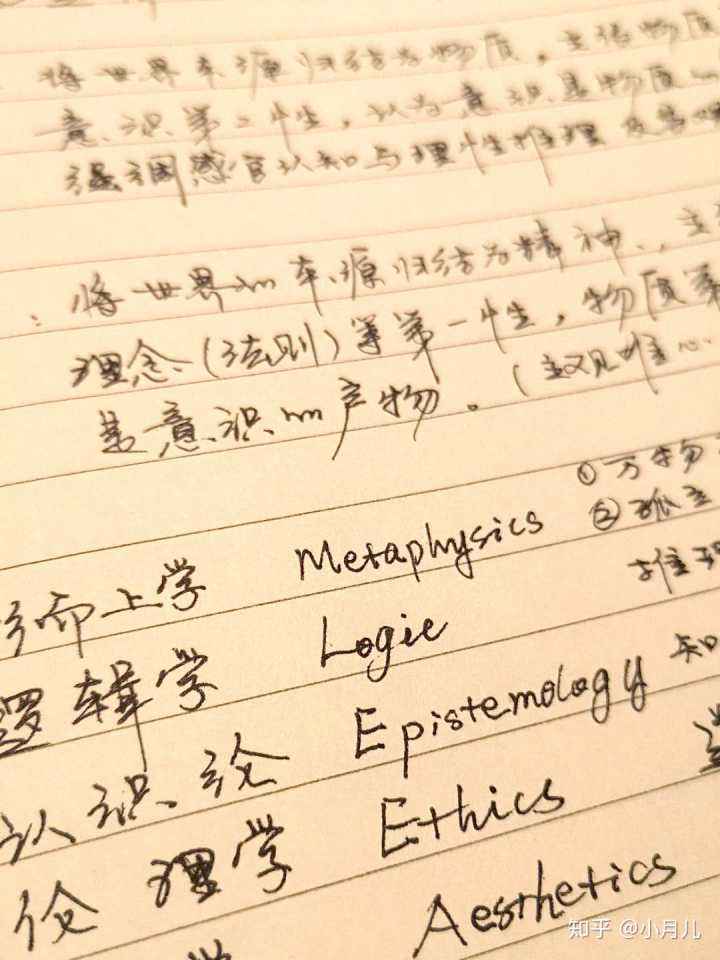 将世界本源归结为物质，主张物质
意识第二性，认为意识是物质
强调感官认知与理性推理
：将世界的本源归结为精神，主
理念（法则）等第一性，物质
是意识的产物。（主观唯心
①万物
形而上学 Metaphysics ②孤立
推理
逻辑学 Logic
认识论 Epistemology 知
伦理学 Ethics
学 Aesthetics
知乎 @小月儿